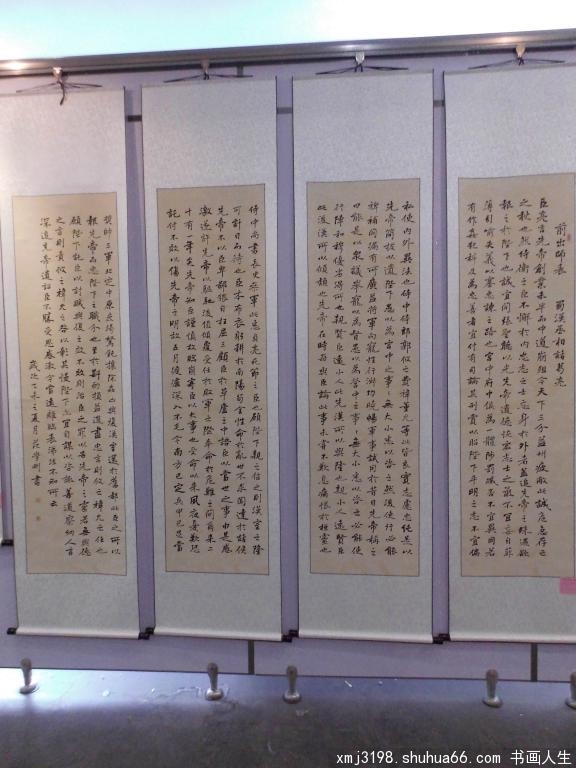 前出師表 蜀漢丞相諸葛亮
臣亮言先帝創業未半而中道崩殂今天下三分益州疲敝此誠危急存亡
之秋也然侍衛之臣不懈於內忠志之士忘身於外者蓋追先帝之殊遇欲
報之於陛下也誠宜開張聖聽以光先帝遺德恢宏志士之氣不宜妄自菲
薄引喻失義以塞忠諫之路也宮中府中俱為一體陟罰臧否不宜異同若
有作奸犯科及為忠善者宜付有司論其刑賞以昭陛下平明之志不宜偏
私使內外異法也侍中侍郎郭攸之費禕董允等此皆良實志慮忠純是以
先帝簡拔以遺陛下愚以為宮中之事事無大小悉以咨之然後施行必能
裨補闕漏有所廣益將軍向寵性行淑均曉暢軍事試用於昔日先帝稱之
曰能是以眾議舉寵以為督愚以為營中之事事無大小悉以咨之必能使
行陣和睦優劣得所也親賢臣遠小人此先漢所以興隆也親小人遠賢臣
此後漢所以傾頹也先帝在時每與臣論此事未嘗不歎息痛恨於桓靈也
侍中尚書長史參軍此悉貞亮死節之臣也願陛下親之信之則漢室之隆
可計日而待也臣本布衣躬耕於南陽苟全性命於亂世不求聞達於諸侯
先帝不以臣卑鄙猥自枉屈三顧臣於草廬之中諮臣以當世之事由是感
激遂許先帝以驅馳後值傾覆受任於敗軍之際奉命於危難之間爾來二
十有一年矣先帝知臣謹慎故臨崩寄臣以大事也受命以來夙夜憂歎恐
託付不效以傷先帝之明故五月渡瀘深入不毛今南方已定兵甲已足當
獎帥三軍北定中原庶竭駑鈍攘除姦凶興復漢室還於舊都此臣之所以
報先帝而忠陛下之職分也至於斟酌損益進盡忠言則攸之禕允之任也
願陛下託臣以討賊興復之效不效則治臣之罪以告先帝之靈若無興德
之言則責攸之禕允之咎以彰其慢陛下亦宜自謀以咨諏善道察納雅言
深追先帝遺詔臣不勝受恩感激今當遠離臨表涕泣不知所云
xmj3198.shuhua66.com 书画人生